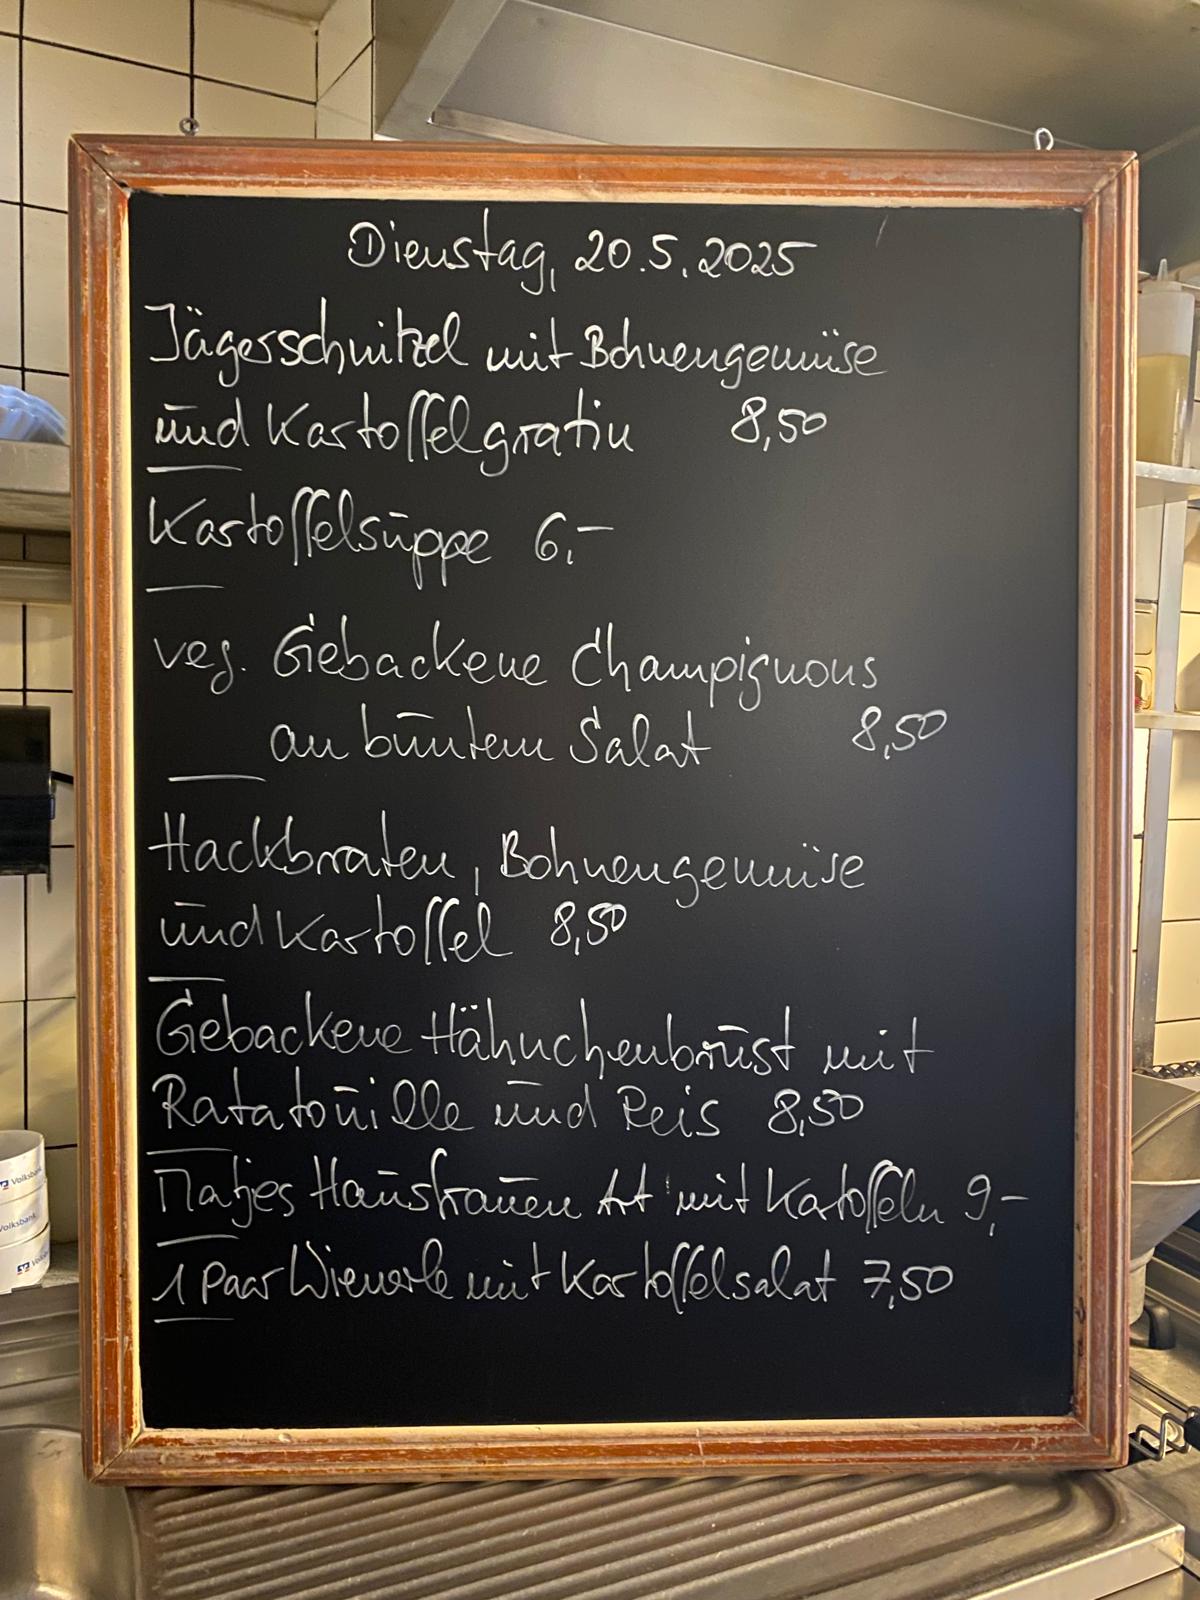 Dienstag, 20.5.2025
Jägerschnitzel mit Bohnengemüse
und Kartoffelgratin 8,50
Kartoffelsuppe 6,-
veg. Gebackene Champignons
an buntem Salat 8,50
Hackbraten, Bohnengemüse
und Kartoffel 8,50
Gebackene Hähnchenbrust mit
Ratatouille und Reis 8,50
Matjes Hausfrauen Art mit Kartoffeln 9,-
1 Paar Wienerle mit Kartoffelsalat 7,50
Volksbank
Volksbank
Volksbank